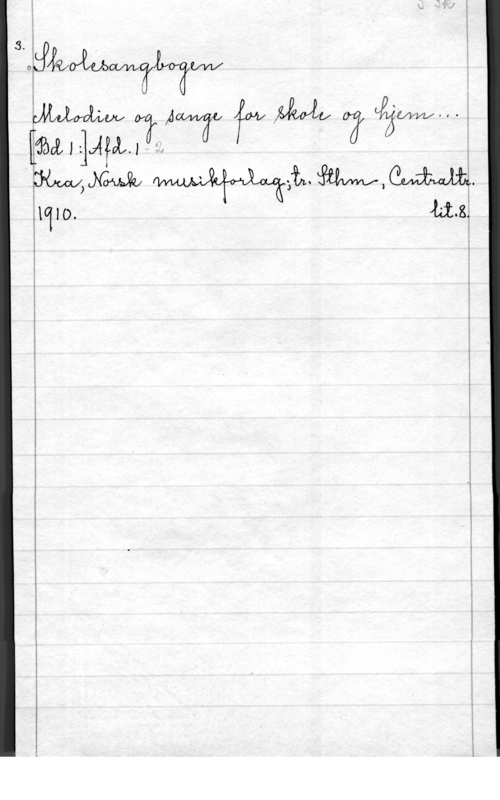 3.
Skolesangbogen
Melodier og sange for skole og hjem...
[Bd 1:] Afd. 1-2
Kra, Norsk musikforlag; tr. Sthm, Centraltr.
1910. lit.8.